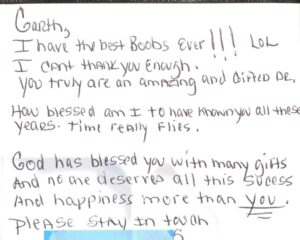 Garth,
I have the best Boobs Ever!!! LoL
I Cant thank you Enough.
You truly are an amazing and Gifted DR.
How blessed am I to have known you all these
years. Time really Flies.
God has blessed you with many gifts
And no one deserves all this sucess
And happiness more than you.
Please Stay In touch